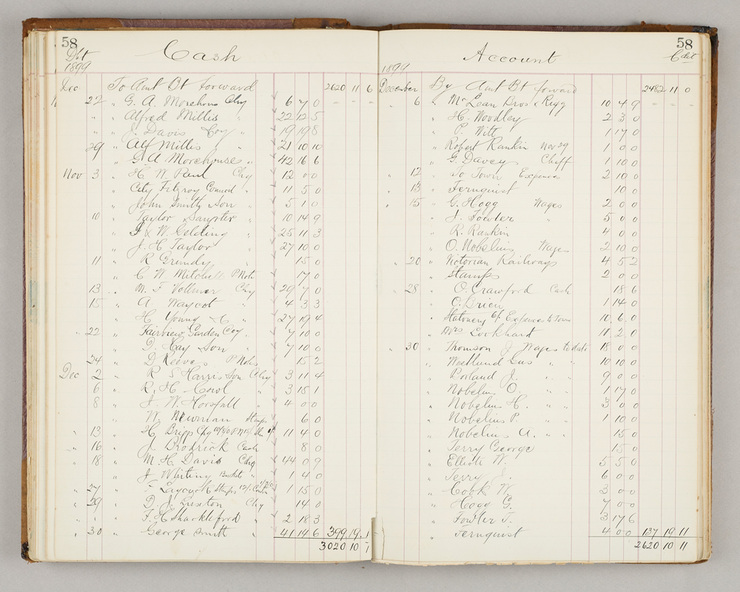 58
Cash
1899
Dec To Amt Bt forward 2620 11 6
22 " G. A. Morehouse Chq 6 7 0
" " Alfred Millis " 22 12 5
" " J. Davis Coy " 19 19 8
29 " Alf Millis " 21 10 10
" " G. A. Morehouse " 42 16 6
Nov 3 " Chq 12 0 0
" City Fitzroy 11 5 0
" John Smith Son " 5 1 0
10 " Taylor " 10 14 9
" " 25 11 3
" J. H. Taylor " 27 10 0
11 " R. Grundy 15 0
" C. W. Mitchell P Note 17 0
13 " M. F. Vollmer Chq 20 7 0
15 " A. 4 3 3
" H. Young & Co " 27 19 4
22 " Fairview Garden Coy " 7 10 0
" D. Hay Son " 7 10 0
24 " D. P Note 15 2
Dec 2 " R. S. Harris Son Chq 3 11 4
6 " R. H. 3 15 1
8 " J. W. Horsfall 4 0 0
" W. Newman Stamps 6 0
13 " H. 11 4 0
16 " J. Brodrick Cash 8 0
18 " M. H. Davis Chq 44 0 9
" J. Whiting 1 4 0
27 " 1 15 0
29 " D. J. Chq 14 0
" F. H. Shackleford " 2 18 3
30 " George Smith " 41 19 6 399 19 1
3020 10 7
58
Account
1899
December By Amt Bt forward 2482 11 0
6 " McLean Bros & Rigg 10 4 9
" H. Woodley 2 3 0
" P. Witt 1 17 0
" Robert Rankin 1 0 0
" G. Davey Chaff 1 10 0
12 " To Town Expenses 2 10 0
13 " Fernquist 10 0
15 " G. Hogg Wages 2 0 0
" J. Fowler " 5 0 0
" R. Rankin 4 0 0
" O. Nobelius Wages 2 10 0
20 " Victorian Railways 4 5 2
" Stamps 2 0 0
28 " O. Crawford Cash 18 6
" O. 1 14 0
" Stationery Expenses to Town 10 6 0
" Mrs Lockhart 11 2 0
30 " Thomson J. Wages to date 18 0 0
" Gus " " 10 10 0
" J. " " 9 0 0
" Nobelius O. " " 1 17 0
" Nobelius H. " " 3 0 0
" Nobelius P. " " 1 10 0
" Nobelius A. " " 15 0
" Terry George 15 0
" Elliott W. 5 5 0
" Terry 6 0 0
" Cook W. 3 0 0
" Hogg G. 7 0 0
" Fowler J. 3 17 6
" Fernquist 4 0 0 137 19 11
2620 10 11